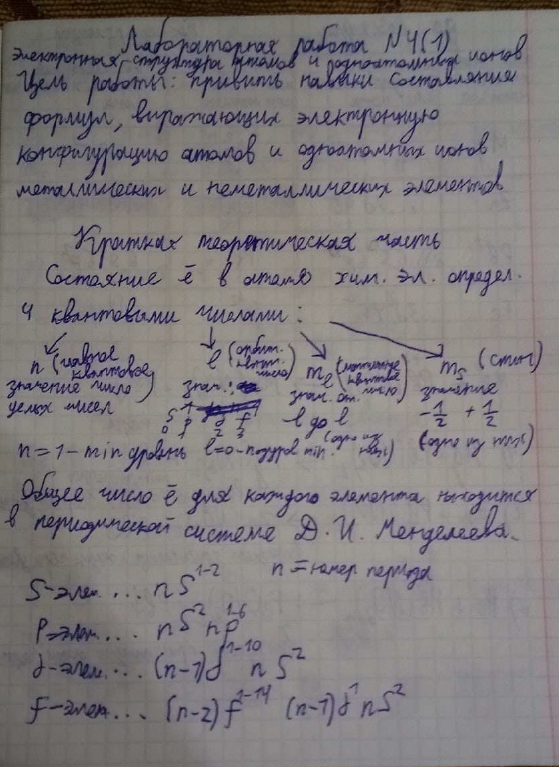 Лабораторная работа №4(1)
электронная структура атомов и одноатомных ионов
Цель работы: привить навыки составления
формул, выражающих электронную
конфигурацию атомов и одноатомных ионов
металлических и неметаллических элементов
Краткая теоретическая часть
Состояние ē в атоме хим. эл. определ.
4 квантовыми числами:
n (главное квантовое число) l (орбит. квант. число) ml (магнитное квантовое число) ms (спин)
значение целых чисел знач.: знач. от значение
s p d f l до l -1/2 +1/2
0 1 2 3 (одно из них) (одно из них)
n = 1 - min уровень l=0 - подуров min.
Общее число ē для каждого элемента находится
в периодической системе Д. И. Менделеева.
S-элем. ... nS¹⁻² n = номер периода
P-элем. ... nS² np¹⁻⁶
d-элем. ... (n-1)d¹⁻¹⁰ nS²
f-элем. ... (n-2)f¹⁻¹⁴ (n-1)d¹ nS²